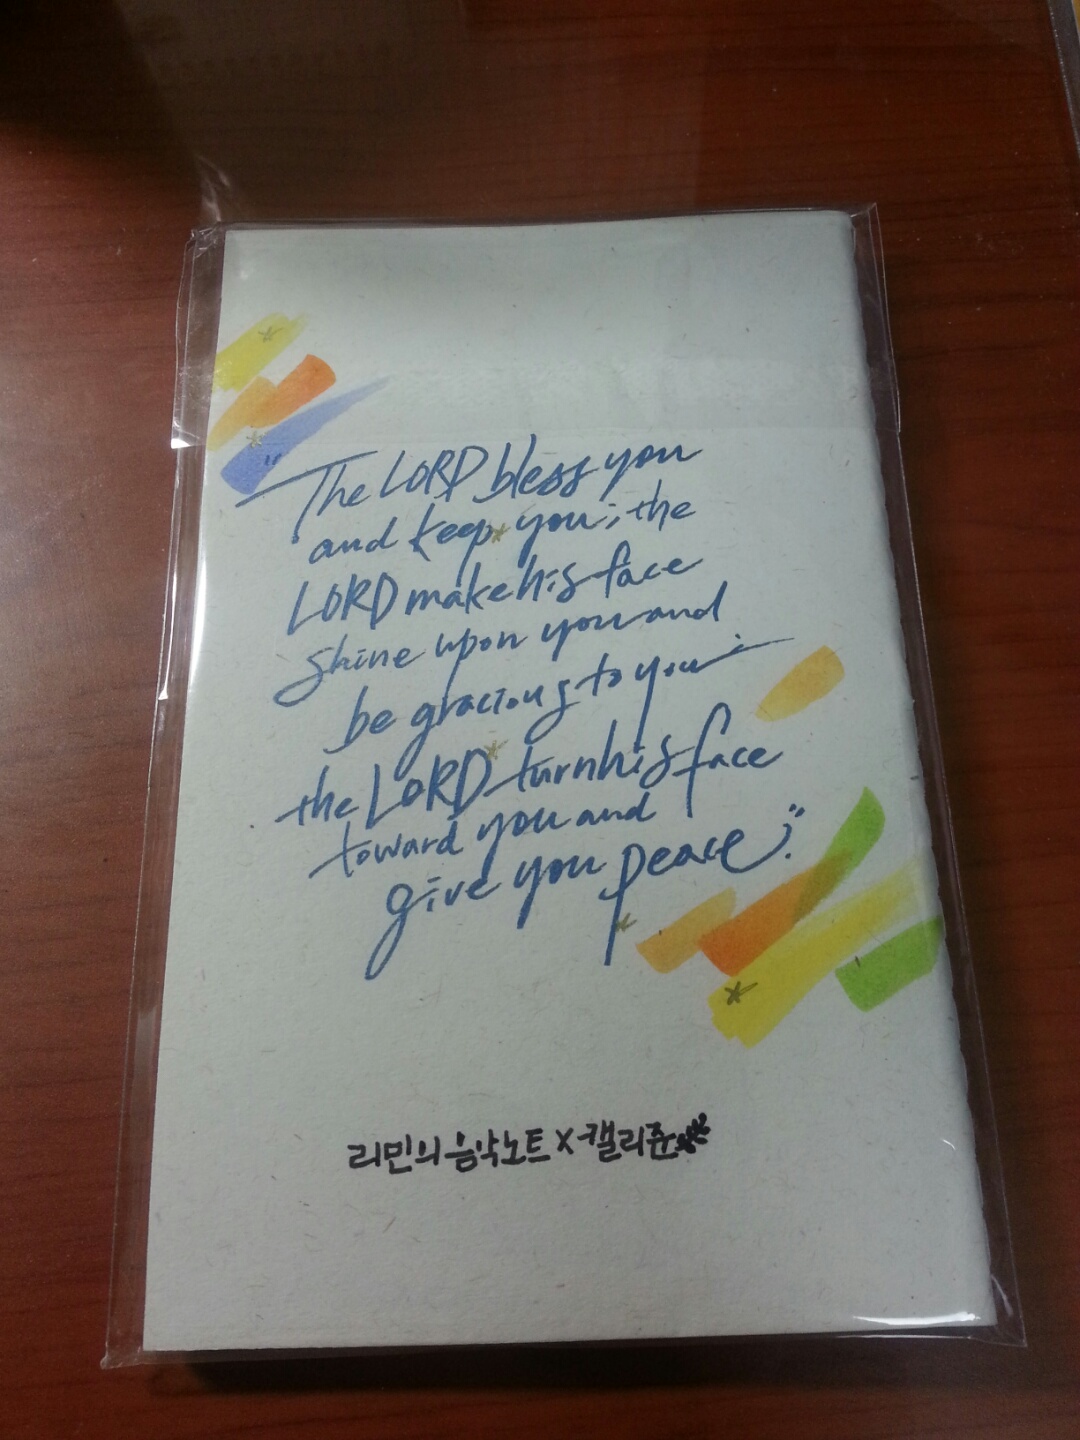 "The LORD bless you
and keep you; the
LORD make his face
shine upon you and
be gracious to you
the LORD turn his face
toward you and
give you peace;."
리민의 음악노트 X 캘리쥰